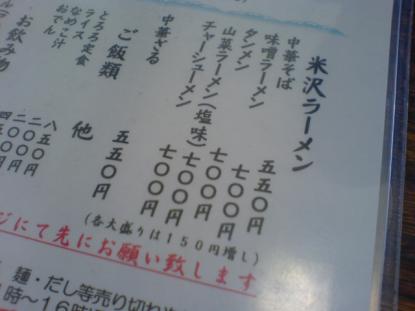 米沢ラーメン
中華そば 五五〇円
味噌ラーメン 七〇〇円
タンメン 七〇〇円
山菜ラーメン(塩味) 七〇〇円
チャーシューメン 七〇〇円
中華ざる 五五〇円
(各大盛りは150円増し)
ご飯類 他
とろろ定食 八五〇
ライス 二〇〇
なめこ汁 二〇〇
おでん
お飲み物
にて先にお願い致します
麺・だし等売り切れ
時~16時